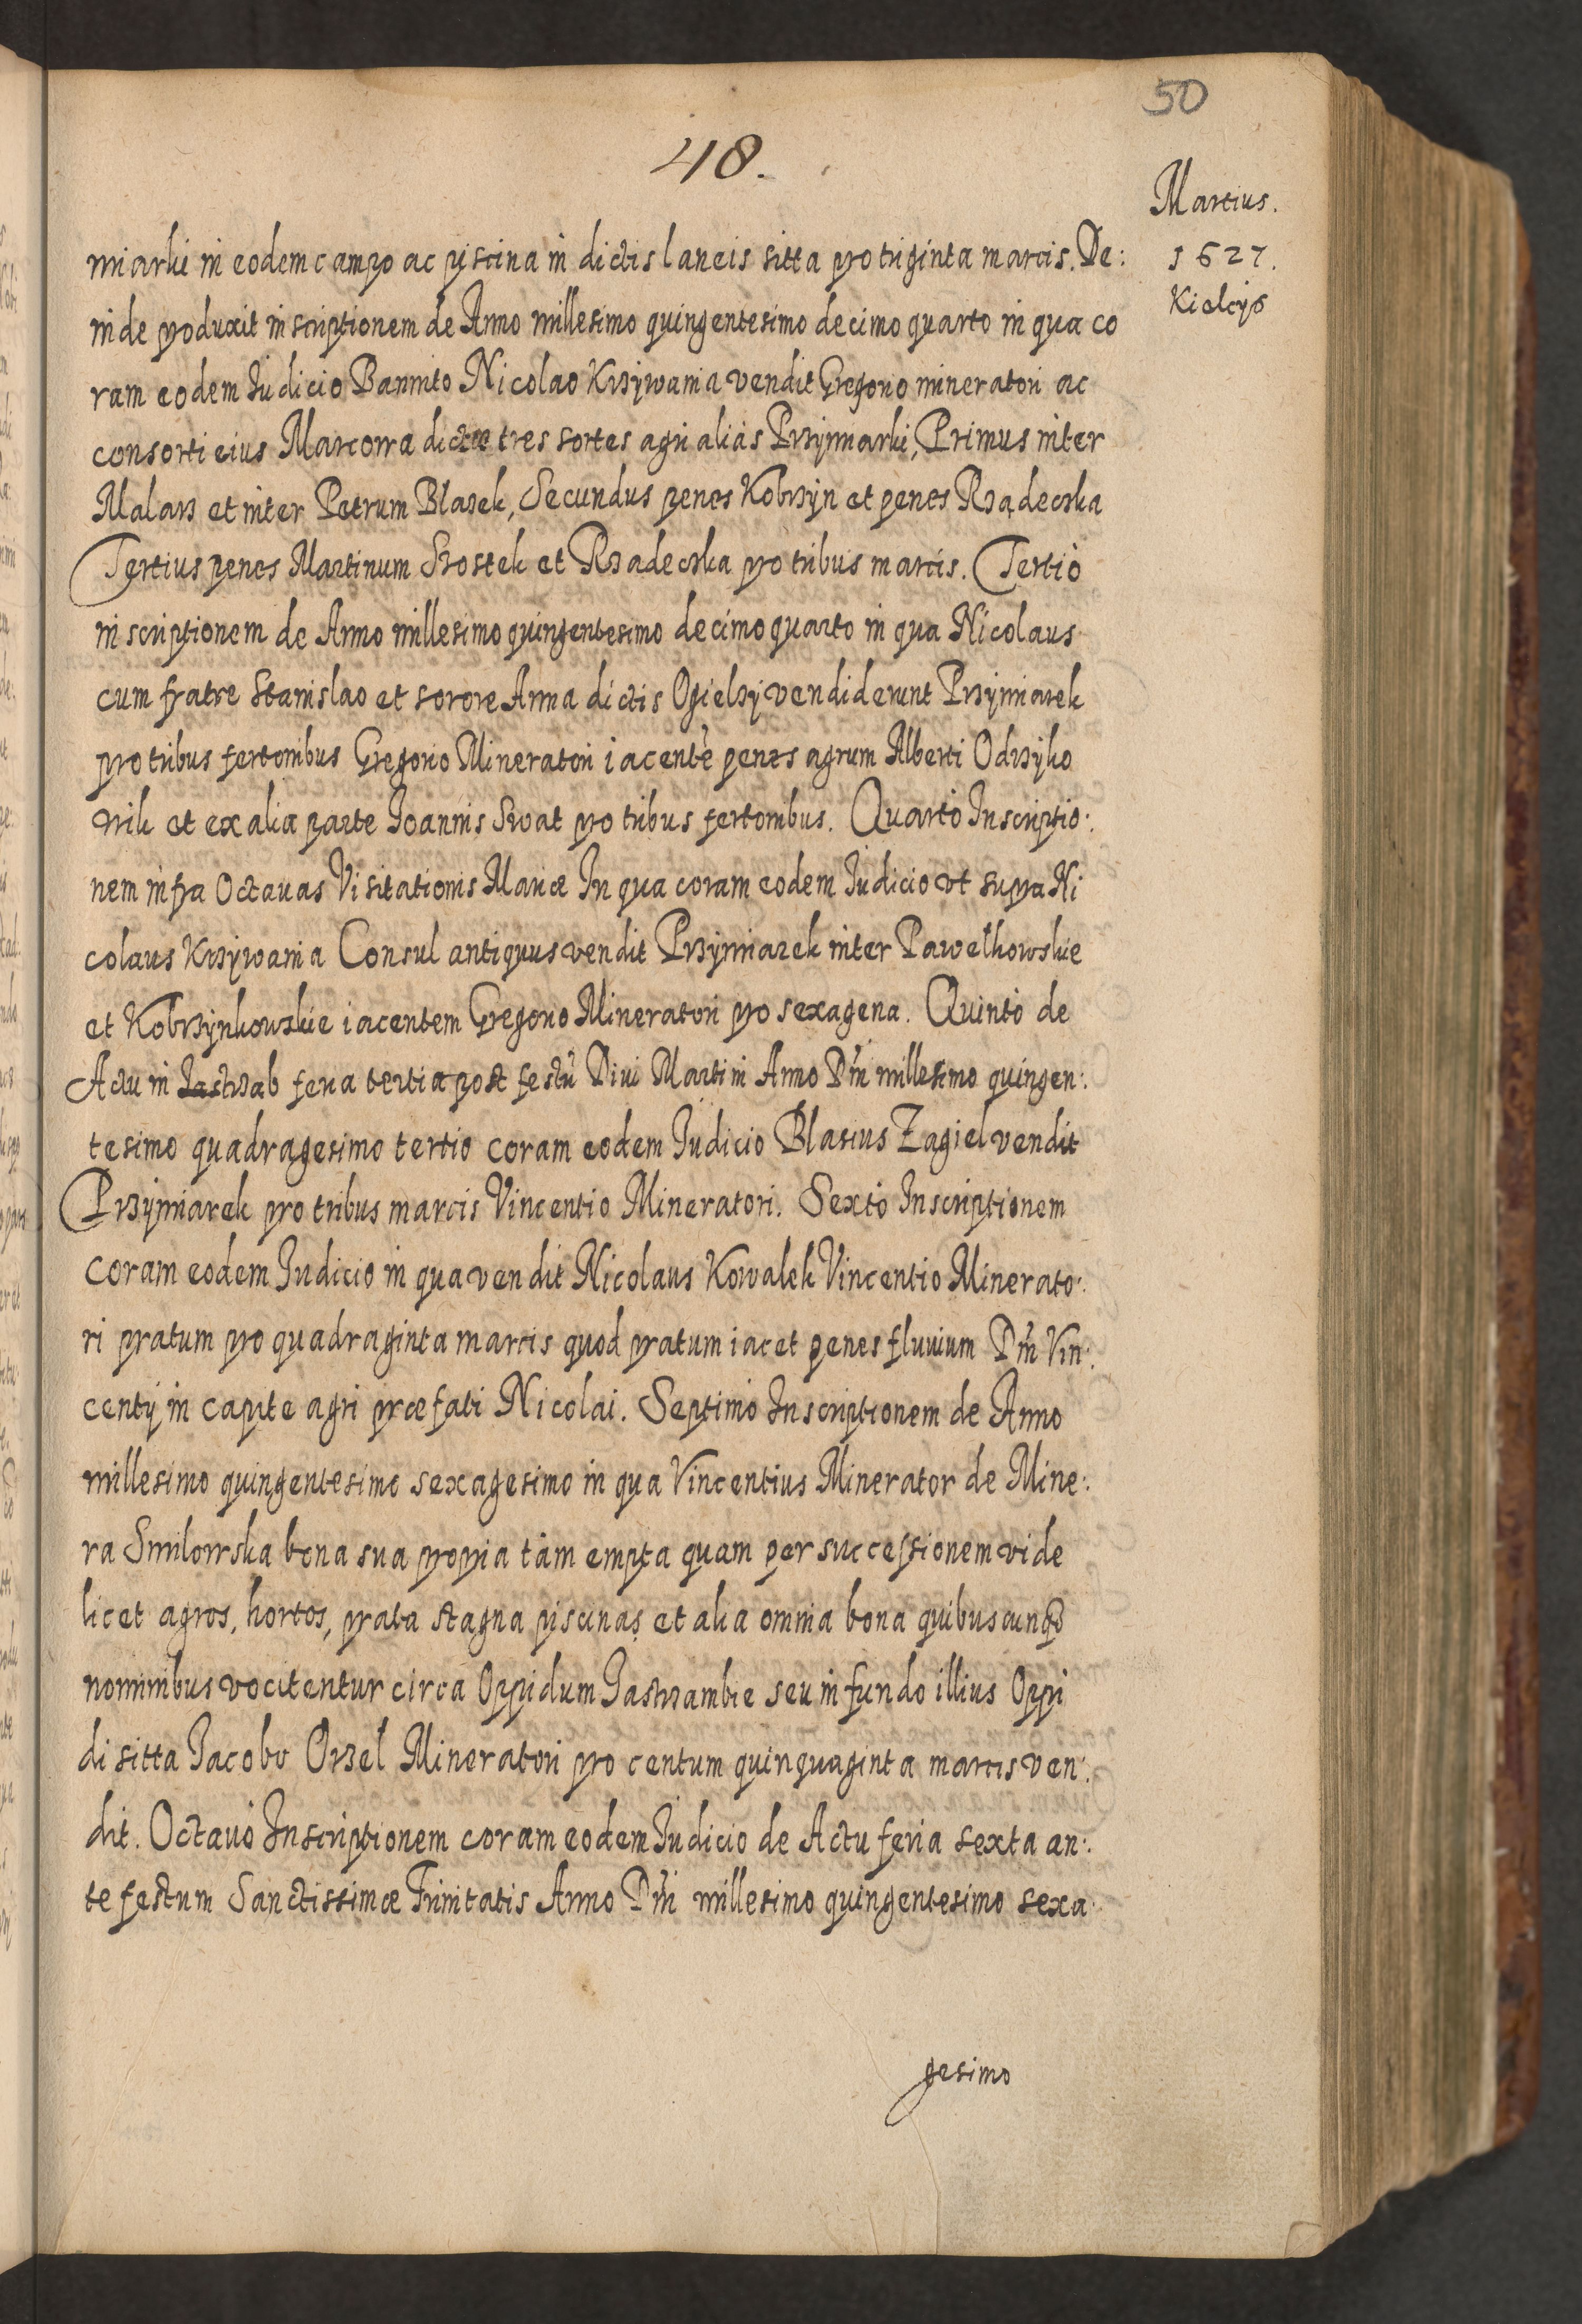 50
48.
Martius.
1627.
Kielcijs
miarki in eodem campo ac piscina in dictis laneis sitta pro triginta marcis. De:
inde produxit inscriptionem de Anno millesimo quingentesimo decimo quarto in qua co
ram eodem Iudicio Bannito Nicolao Krzywania vendit Gregorio mineratori ac
consorti eius Marcowa dictæ tres sortes agri aliàs Przymiarki, Primus inter
Malarz et inter Petrum Blasek, Secundus penes Kobrzyn et penes Rządeczka
Tertius penes Martinum Szostek et Rządeczka pro tribus marcis. Tertiò
inscriptionem de Anno millesimo quingentesimo decimo quarto in qua Nicolaus
cum fratre Stanislao et sorore Anna dictis Ogielzy vendiderunt Przymiarek
pro tribus fertonibus Gregorio Mineratori iacentè penes agrum Alberti Odrzyko
wik et ex alia parte Joannis Swat pro tribus fertonibus. Quartò Inscriptio:
nem infra Octauas Visitationis Mariæ In qua coram eodem Iudicio vt supra Ni
colaus Krzywania Consul antiquus vendit Przymiarek inter Pawełkowskie
et Kobrzynkowskie iacentem Gregorio Mineratori pro sexagena. Quintò de
Actu in Jastrzab feria tertia post festũ Diui Martini Anno Dñi millesimo quingen:
tesimo quadragesimo tertio coram eodem Iudicio Blasius Zagiel vendit
Przymiarek pro tribus marcis Vincentio Mineratori. Sextò Inscriptionem
coram eodem Iudicio in qua vendit Nicolaus Kowalek Vincentio Minerato:
ri pratum pro quadraginta marcis quod pratum iacet penes fluuium Dñi Vin:
centij in capite agri præfati Nicolai. Septimò Inscriptionem de Anno
millesimo quingentesimo sexagesimo in qua Vincentius Minerator de Mine:
ra Smilowska bona sua propria tàm empta quam per successionem vide
licet agros, hortos, prata stagna piscinas et alia omnia bona quibuscunq3
nominibus vocitentur circa Oppidum Jastrzambie seu in fundo illius Oppi
di sitta Jacobo Orzel Mineratori pro centum quinquaginta marcis ven:
dit. Octauò Inscriptionem coram eodem Iudicio de Actu feria sexta an:
te festum Sanctissimæ Trinitatis Anno Dñi millesimo quingentesimo sexa:
gesimo